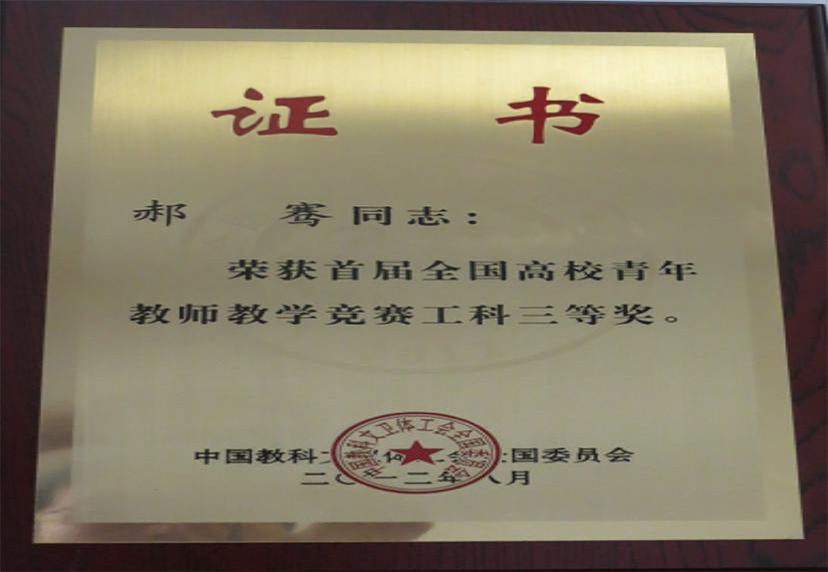 证 书
郝 骞 同志：
荣获首届全国高校青年
教师教学竞赛工科三等奖。
中国教科文卫体工会全国委员会
中国教科 国委员会
二〇一二年八月